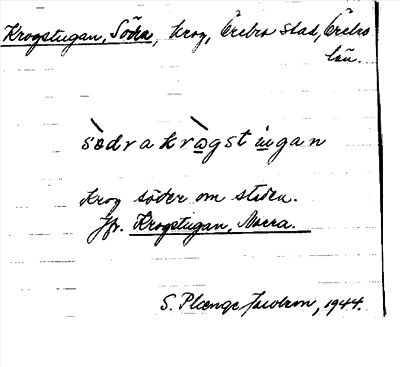 Krogstugan, Södra, krog, Örebro stad, Örebro
län.
södra krogstugan
Krog söder om staden.
Jfr. Krogstugan, Norra.
S. Plænge Jacobson, 1944.